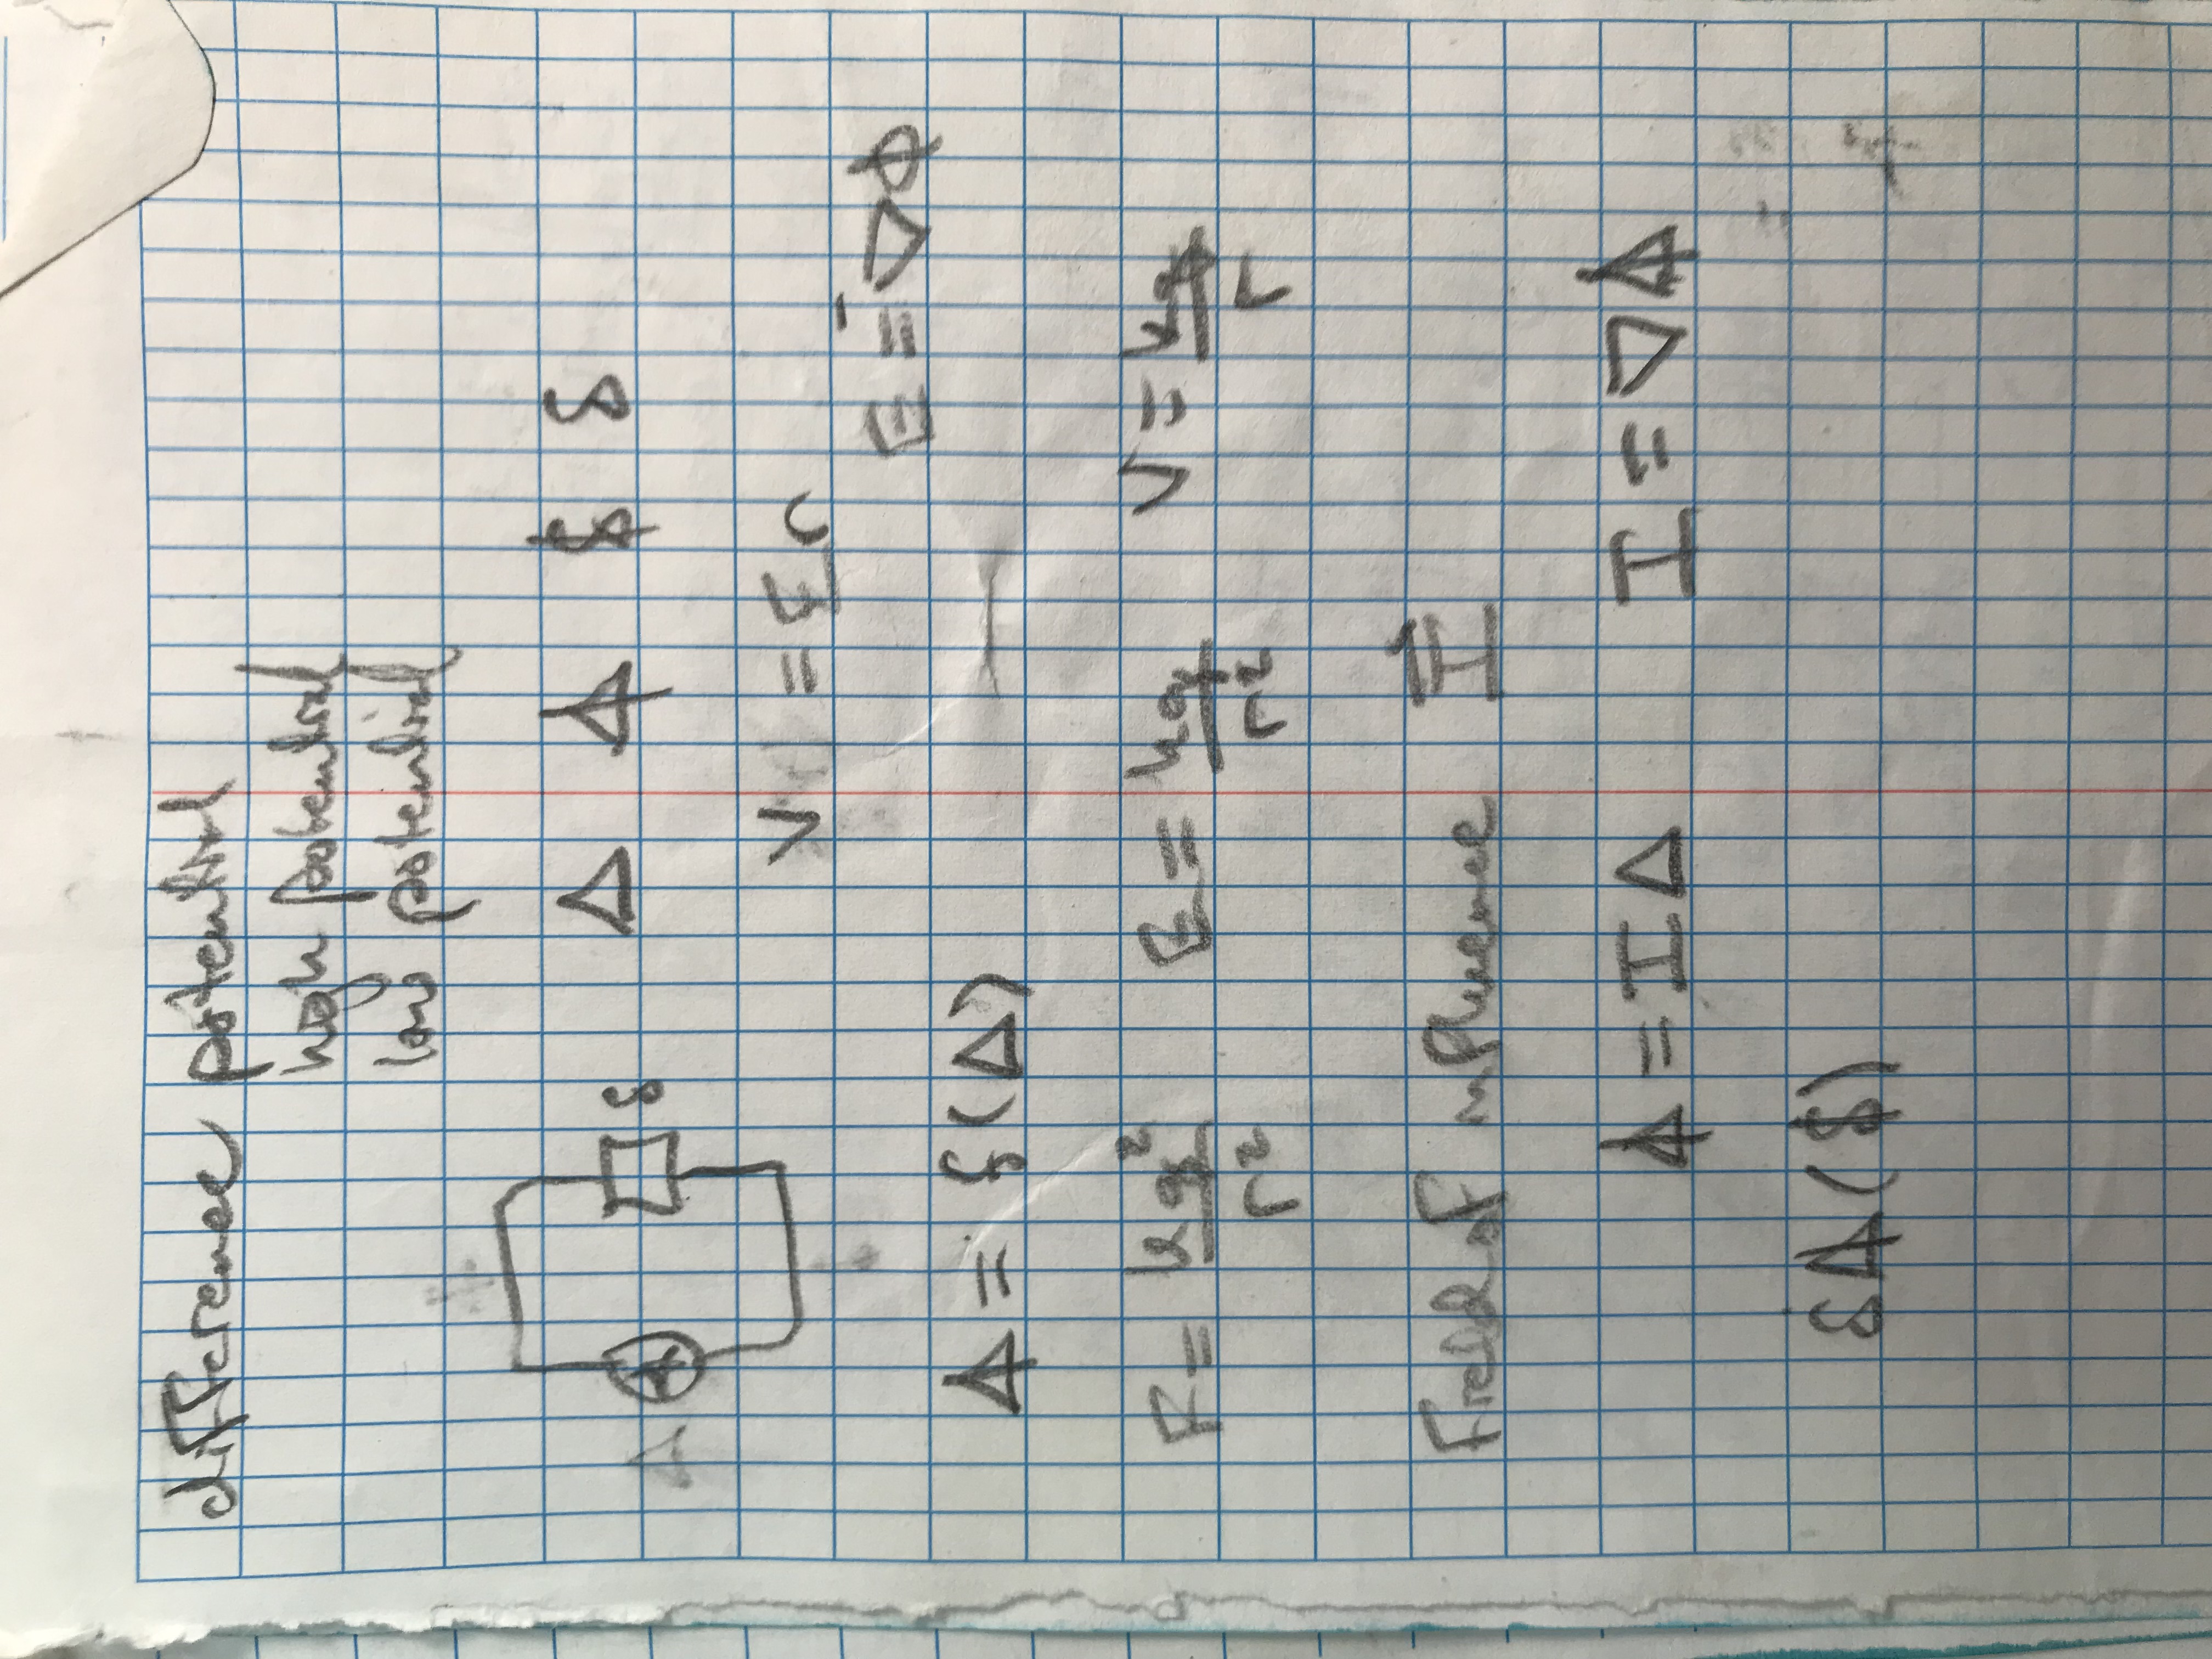 difference potential
high potential
low potential
Δ δ Δ ⍋ $ δ
V = Er
E = -∇Φ
⍋ = f(Δ)
F = kq²/r² E = kq/r² V = kq/r
Field of influence I⃗
⍋ = IΔ I = ∇⍋
δ⍋($)